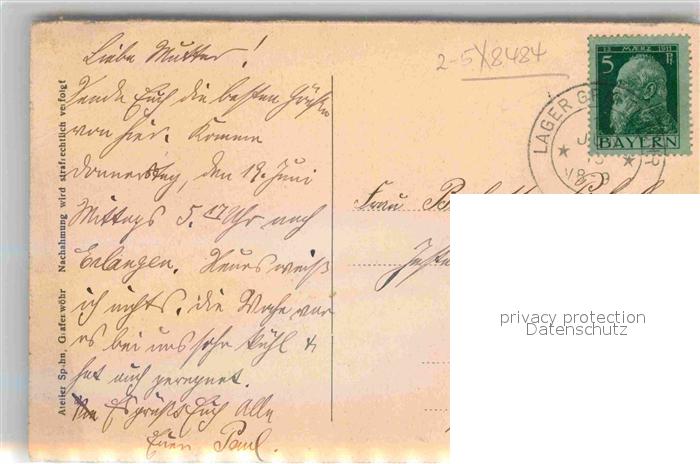 Liebe Mutter!
Sende Euch die besten Grüße
von hier. Komme
Donnerstag, den 19. Juni
Mittags 5.17 Uhr nach
Erlangen. Neues weiß
ich nichts. die Woche war
es bei uns sehr kühl &
hat auch geregnet.
Es grüßt Euch Alle
Euer Paul.
Atelier Spahn, Grafenwöhr Nachahmung wird strafrechtlich verfolgt
2-5X8484
12. MÆRZ 1911
5 Pf.
BAYERN
LAGER G
V8-9
Frau
privacy protection
Datenschutz